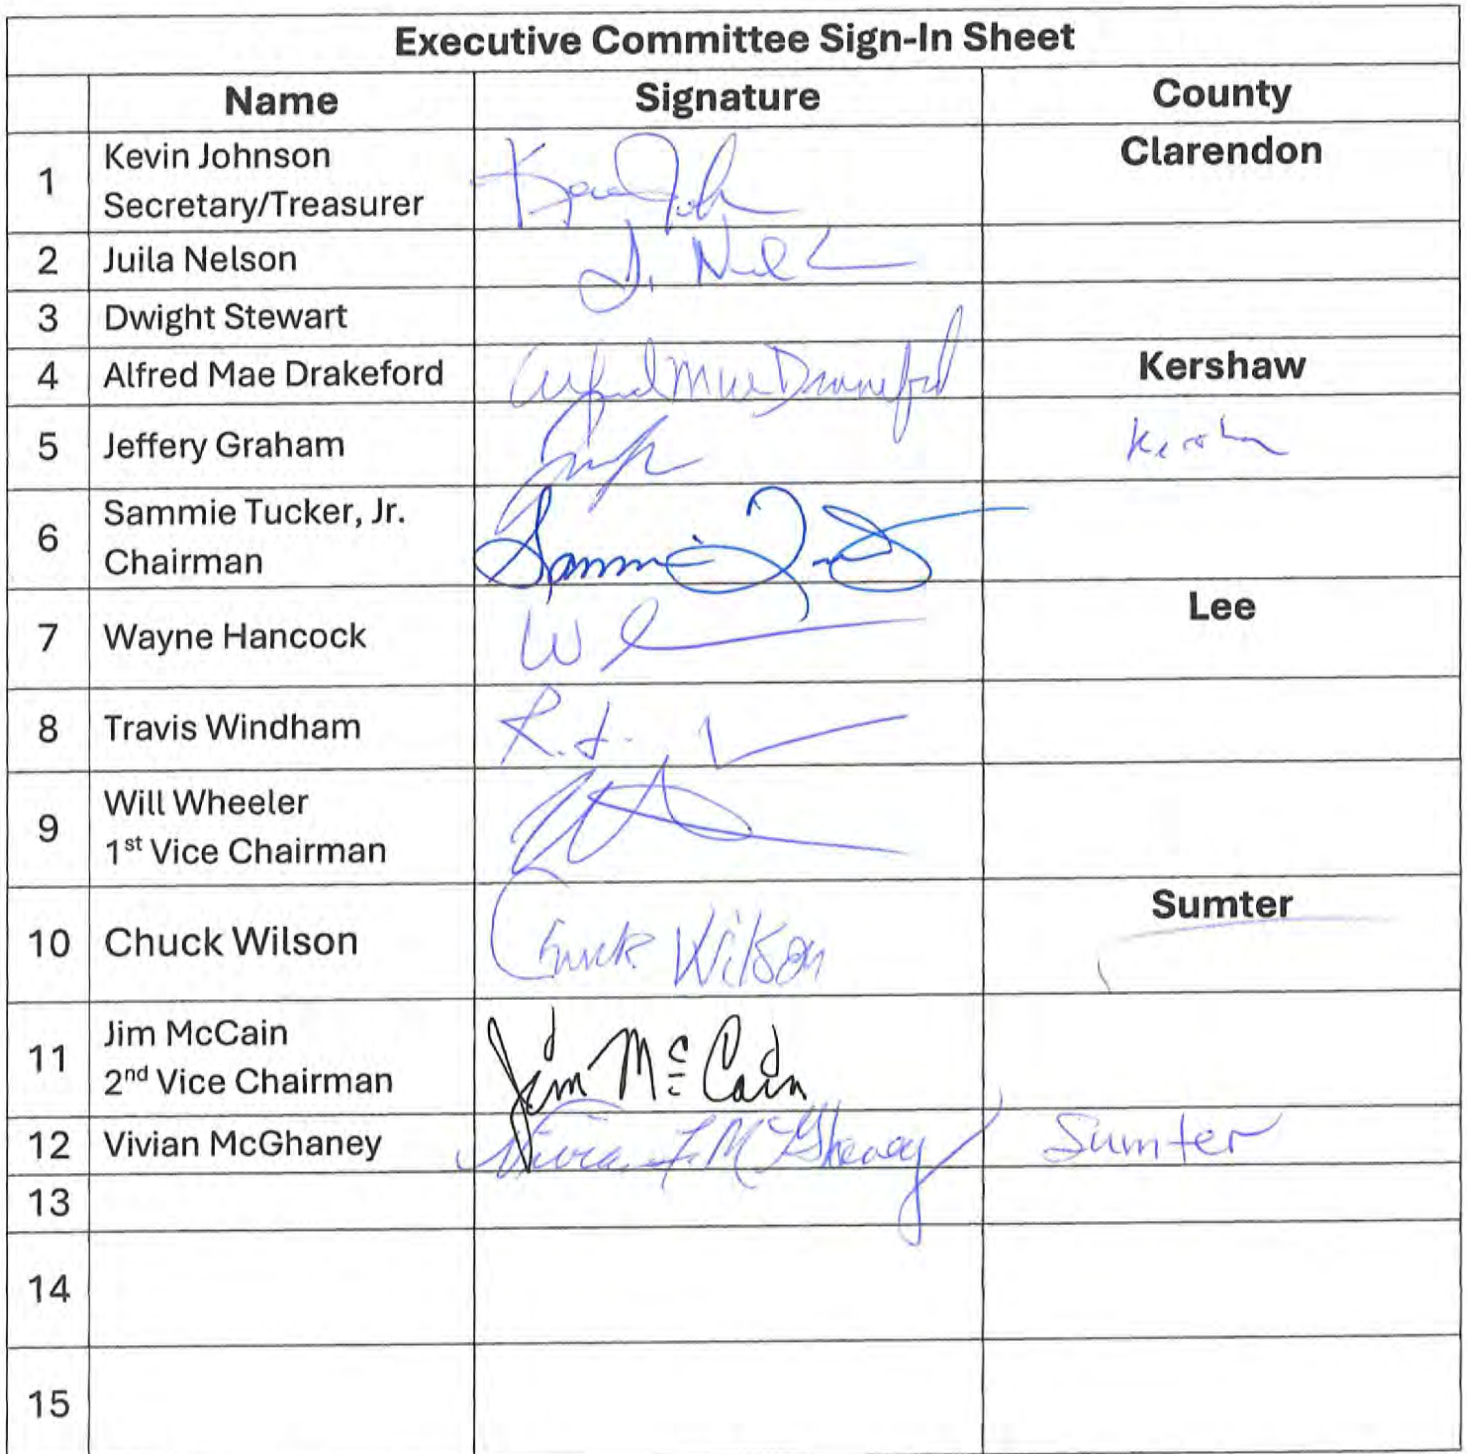 Executive Committee Sign-In Sheet
Name Signature County
1 Kevin Johnson Clarendon
Secretary/Treasurer
2 Juila Nelson
3 Dwight Stewart
4 Alfred Mae Drakeford Alfred Mae Drakeford Kershaw
5 Jeffery Graham Kershaw
6 Sammie Tucker, Jr. Sammie
Chairman
7 Wayne Hancock Lee
8 Travis Windham
9 Will Wheeler
1st Vice Chairman
10 Chuck Wilson Chuck Wilson Sumter
11 Jim McCain Jim McCain
2nd Vice Chairman
12 Vivian McGhaney Sumter
13
14
15